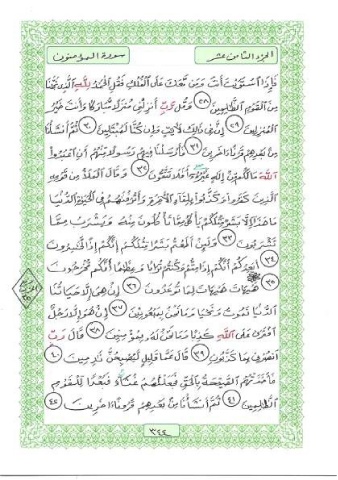 الجزء الثامن عشر
سورة المؤمنون
فإذا استويت أنت ومن معك على الفلك فقل الحمد لله الذي نجىنا
من القوم الظلمين ٢٨ وقل رب أنزلني منزلا مباركا وأنت خير
المنزلين ٢٩ إن في ذلك لأيت وإن كنا لمبتلين ٣٠ ثم أنشأنا
من بعدهم قرنا ءاخرين ٣١ فأرسلنا فيهم رسولا منهم أن اعبدوا
الله ما لكم من إله غيره أفلا تتقون ٣٢ وقال الملأ من قومه
الذين كفروا وكذبوا بلقاء الأخرة وأترفنهم في الحيوة الدنيا
ما هذا إلا بشر مثلكم يأكل مما تأكلون منه ويشرب مما
تشربون ٣٣ ولئن أطعتم بشرا مثلكم إنكم إذا لخسرون
٣٤ أيعدكم أنكم إذا متم وكنتم ترابا وعظما أنكم مخرجون
٣٥ هيهات هيهات لما توعدون ٣٦ إن هي إلا حياتنا
الدنيا نموت ونحيا وما نحن بمبعوثين ٣٧ إن هو إلا رجل
افترى على الله كذبا وما نحن له بمؤمنين ٣٨ قال رب
انصرني بما كذبون ٣٩ قال عما قليل ليصبحن ندمين ٤٠
فأخذتهم الصيحة بالحق فجعلنهم غثاء فبعدا للقوم
الظلمين ٤١ ثم أنشأنا من بعدهم قرونا ءاخرين ٤٢
٣٤٤